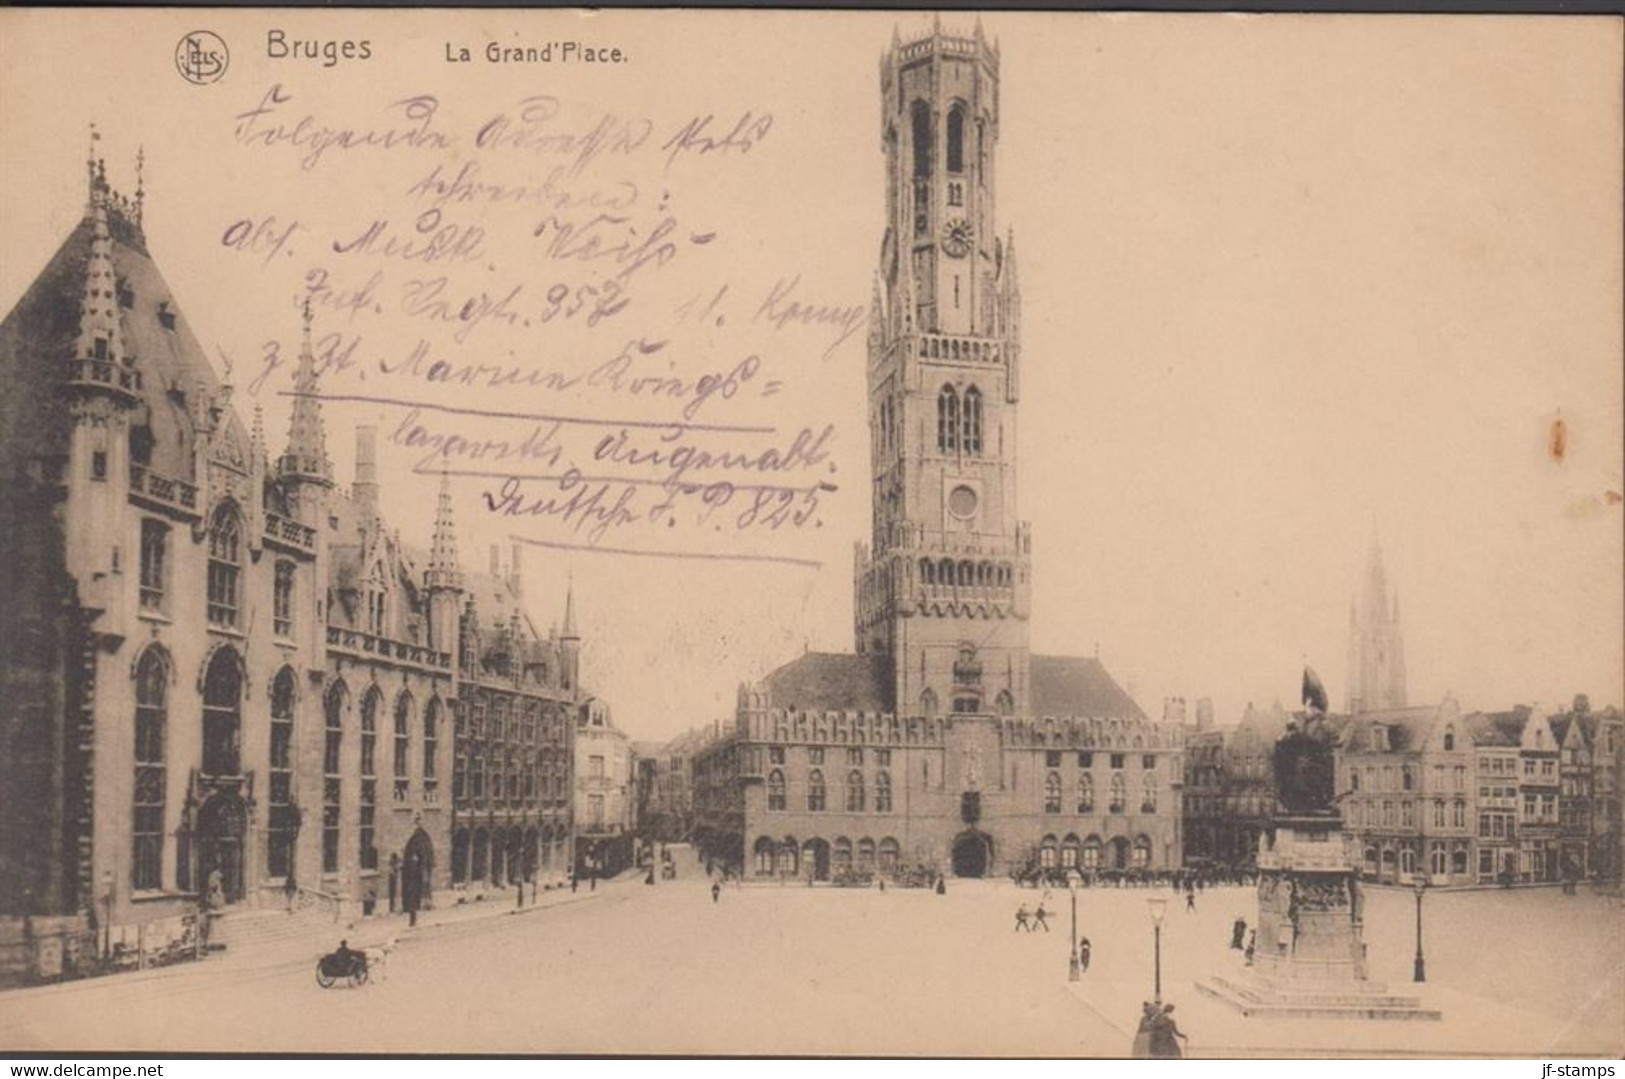 NELS
Bruges La Grand'Place.
Folgende Adresse stets
schreiben:
Abs. Musk. Weiß
Inf. Regt. 352 11. Komp
z. Zt. Marine Kriegs=
lazarett, Augenabt.
Deutsche F. P. 825.
jf-stamps